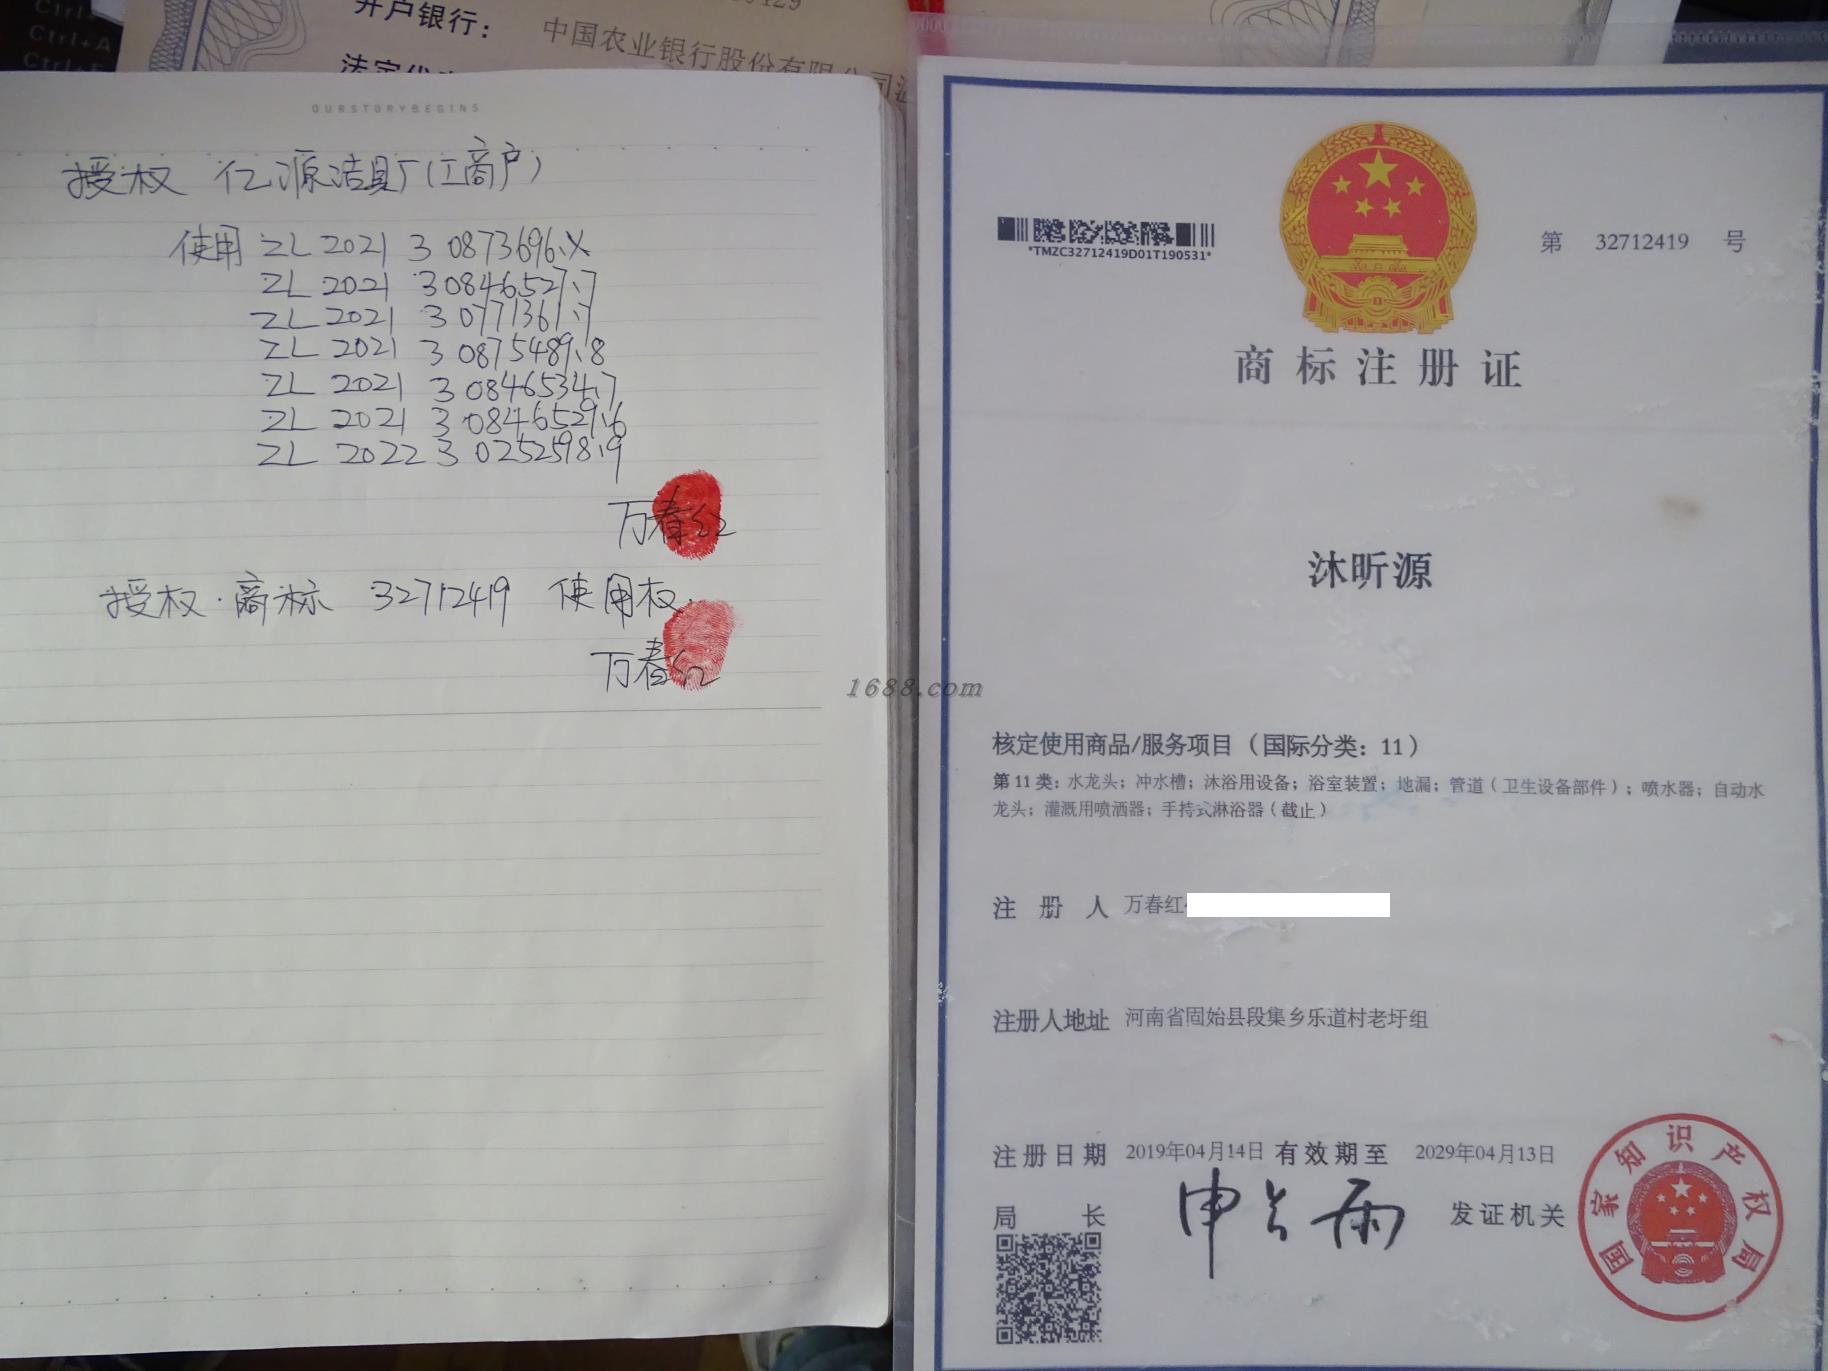 Ctrl+A
开户银行：
中国农业银行股份有限公司
OURSTORYBEGINS
授权 亿源洁具厂(工商户)
使用 ZL 2021 3 0873696.X
ZL 2021 3 0846527.7
ZL 2021 3 0771361.7
ZL 2021 3 0875489.8
ZL 2021 3 0846534.7
ZL 2021 3 0846529.6
ZL 2022 3 0252598.9
万春红
授权·商标 32712419 使用权.
万春红
1688.com
*TMZC32712419D01T190531*
第 32712419 号
商标注册证
沐昕源
核定使用商品/服务项目（国际分类：11）
第11类：水龙头；冲水槽；沐浴用设备；浴室装置；地漏；管道（卫生设备部件）；喷水器；自动水
龙头；灌溉用喷洒器；手持式淋浴器（截止）
注册人 万春红
注册人地址 河南省固始县段集乡乐道村老圩组
注册日期 2019年04月14日 有效期至 2029年04月13日
局长 申长雨 发证机关
国家知识产权局